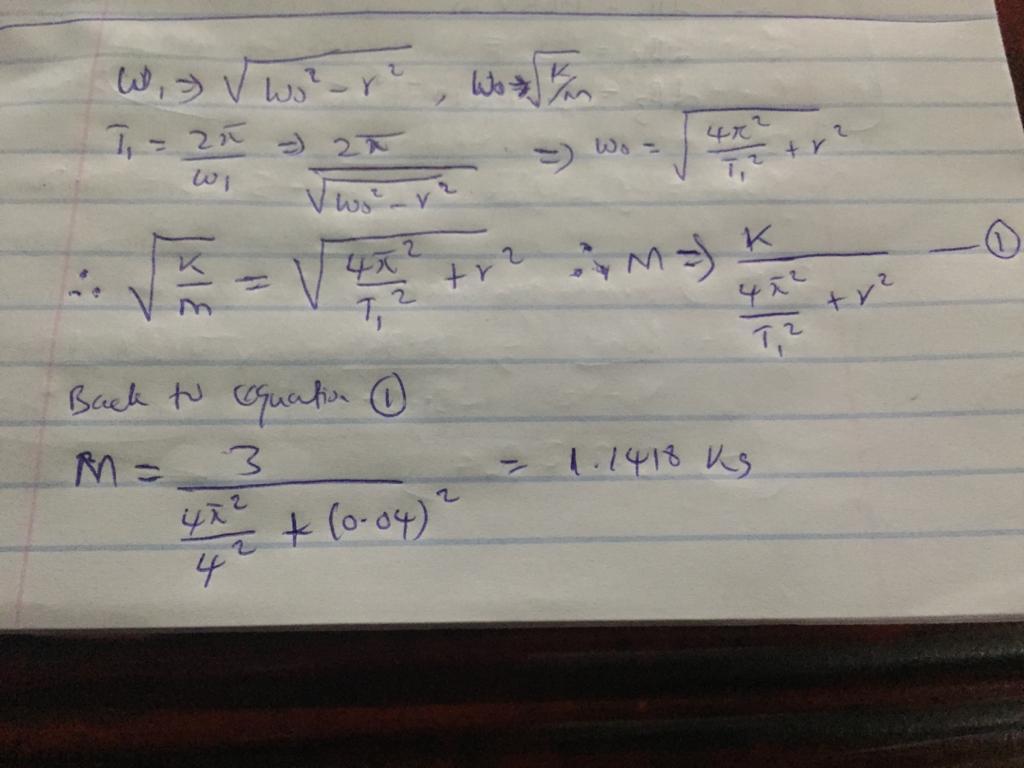 ω₁ ⇒ √(ω₀² − r²) , ω₀ ⇒ √(K/m)
T₁ = 2π/ω₁ ⇒ 2π/√(ω₀² − r²) ⇒ ω₀ = √(4π²/T₁² + r²)
∴ √(K/m) = √(4π²/T₁² + r²) ∴ M ⇒ K/(4π²/T₁² + r²) — ①
Back to equation ①
M = 3/(4π²/4² + (0.04)²) = 1.1418 Kg